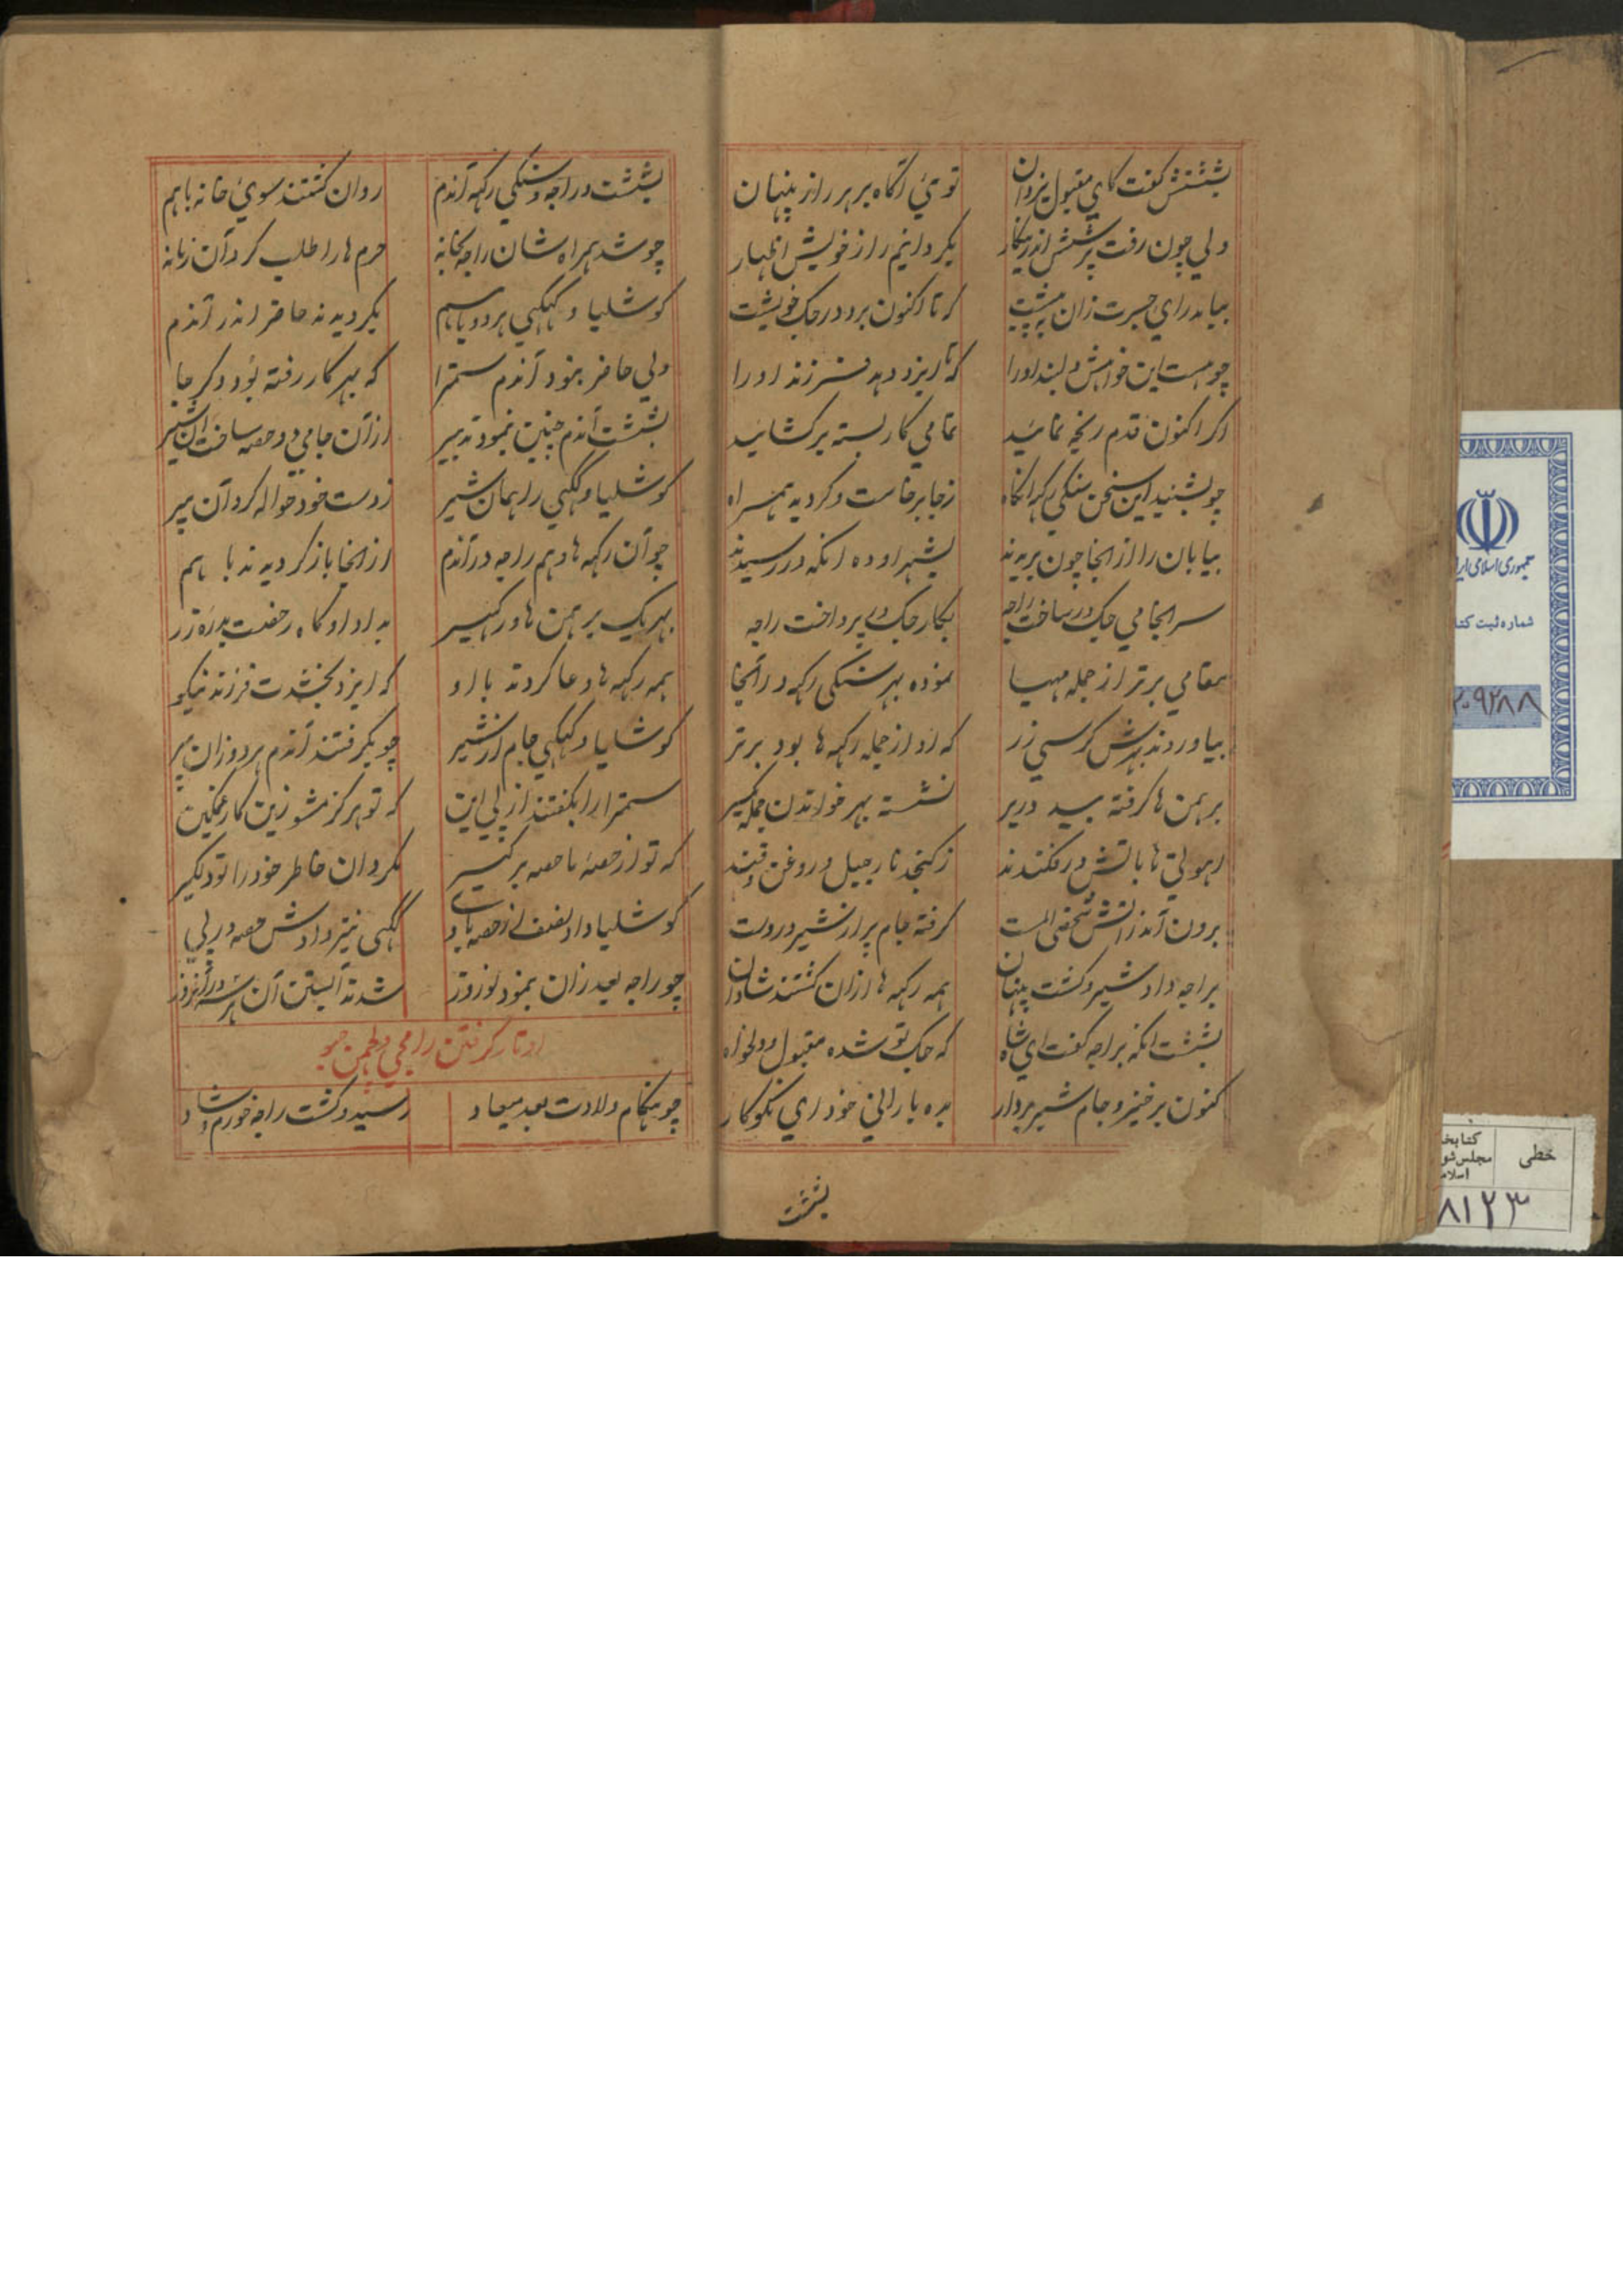 بششتش گفت کای مقبول یزدان توئی آگاه بر هر راز پنهان
ولی چون رفت پرسش اندرینکار بکردانیم راز خویش اظهار
بیاید رای جسرت زان که تا اکنون برد در جک خویشت
چو هست این خواهش دلبند اورا که تا ایزد دهد فرزند اورا
اگر اکنون قدم رنجه نمائید تمامی کار بسته برکشائید
چو بشنید این سخن سنکی رکهه آنگاه زجا برخاست و کردید همراه
بیابان را از انجا چون بریدند بشهر اوده انکه در رسیدند
سرانجامی جک در ساخت راجه بکار جک پرداخت راجه
مقامی برتر از جمله مهیا نموده بهر سنکی رکهه در آنجا
بیاوردند بهرش کرسی زر که او از جمله رکهه ها بود برتر
برهمن ها کرفته بید دربر نشسته بهر خواندن جمله یکسر
هولی ها باتش در فکندند ز کنجد نارجیل و روغن و قند
برون آمد ز آتش شخصی الست کرفته جام پر از شیر در دست
براجه داد شیر و کشت پنهان همه رکهه ها ازان کشتند شادان
بششت انکه براجه گفت ای شاه که جک تو شده مقبول و دلخواه
کنون برخیز و جام شیر بردار بده با رانی خود ای نکوکار
بششت
بششت و راجه و سنکی رکهه آندم روان کشتند سوی خانه باهم
چو شد همراه شان راجه بخانه حرم ها را طلب کرد آن زمانه
کوشلیا و کهکهی هر دو باهم بکردیدند حاضر اندر آندم
ولی حاضر نبود آندم سمترا که بهر کار رفته بود دکر جا
بششت آندم چنین نمود تدبیر ازان جامی دو حصه ساخت آن شیر
کوشلیا و کهکهی را همان شیر زدست خود حواله کرد آن پیر
چو آن رکهه ها و هم راجه در آندم از انجا باز کردیدند با هم
بهر یک برهمن ها و رکهیسر بداد او کاه رخصت بدره زر
همه رکهه ها دعا کردند با او که ایزد بخشدت فرزند نیکو
کوشلیا و کهکهی جام از شیر چو بکرفتند آندم هر دو زان پیر
سمترا را بکفتند از پی این که تو هرکز مشو زین کار غمکین
که تو از حصهٔ ما حصه برکیر مکردان خاطر خود را تو دلکیر
کوشلیا داد نصف از حصه کهکهی نیز دادش حصه در پی
چو راجه بعد زان بنمود شدند آبستن آن هر سه
اوتار کرفتن رامجی و لچمن جیو
چو هنکام ولادت بعد میعاد رسید و کشت راجه خورم و شاد
جمهوری اسلامی ایر
شماره ثبت کتا
۲۰۹۲۸۸
خطی
کتابخا
مجلس شو
اسلام
۸۱۲۳